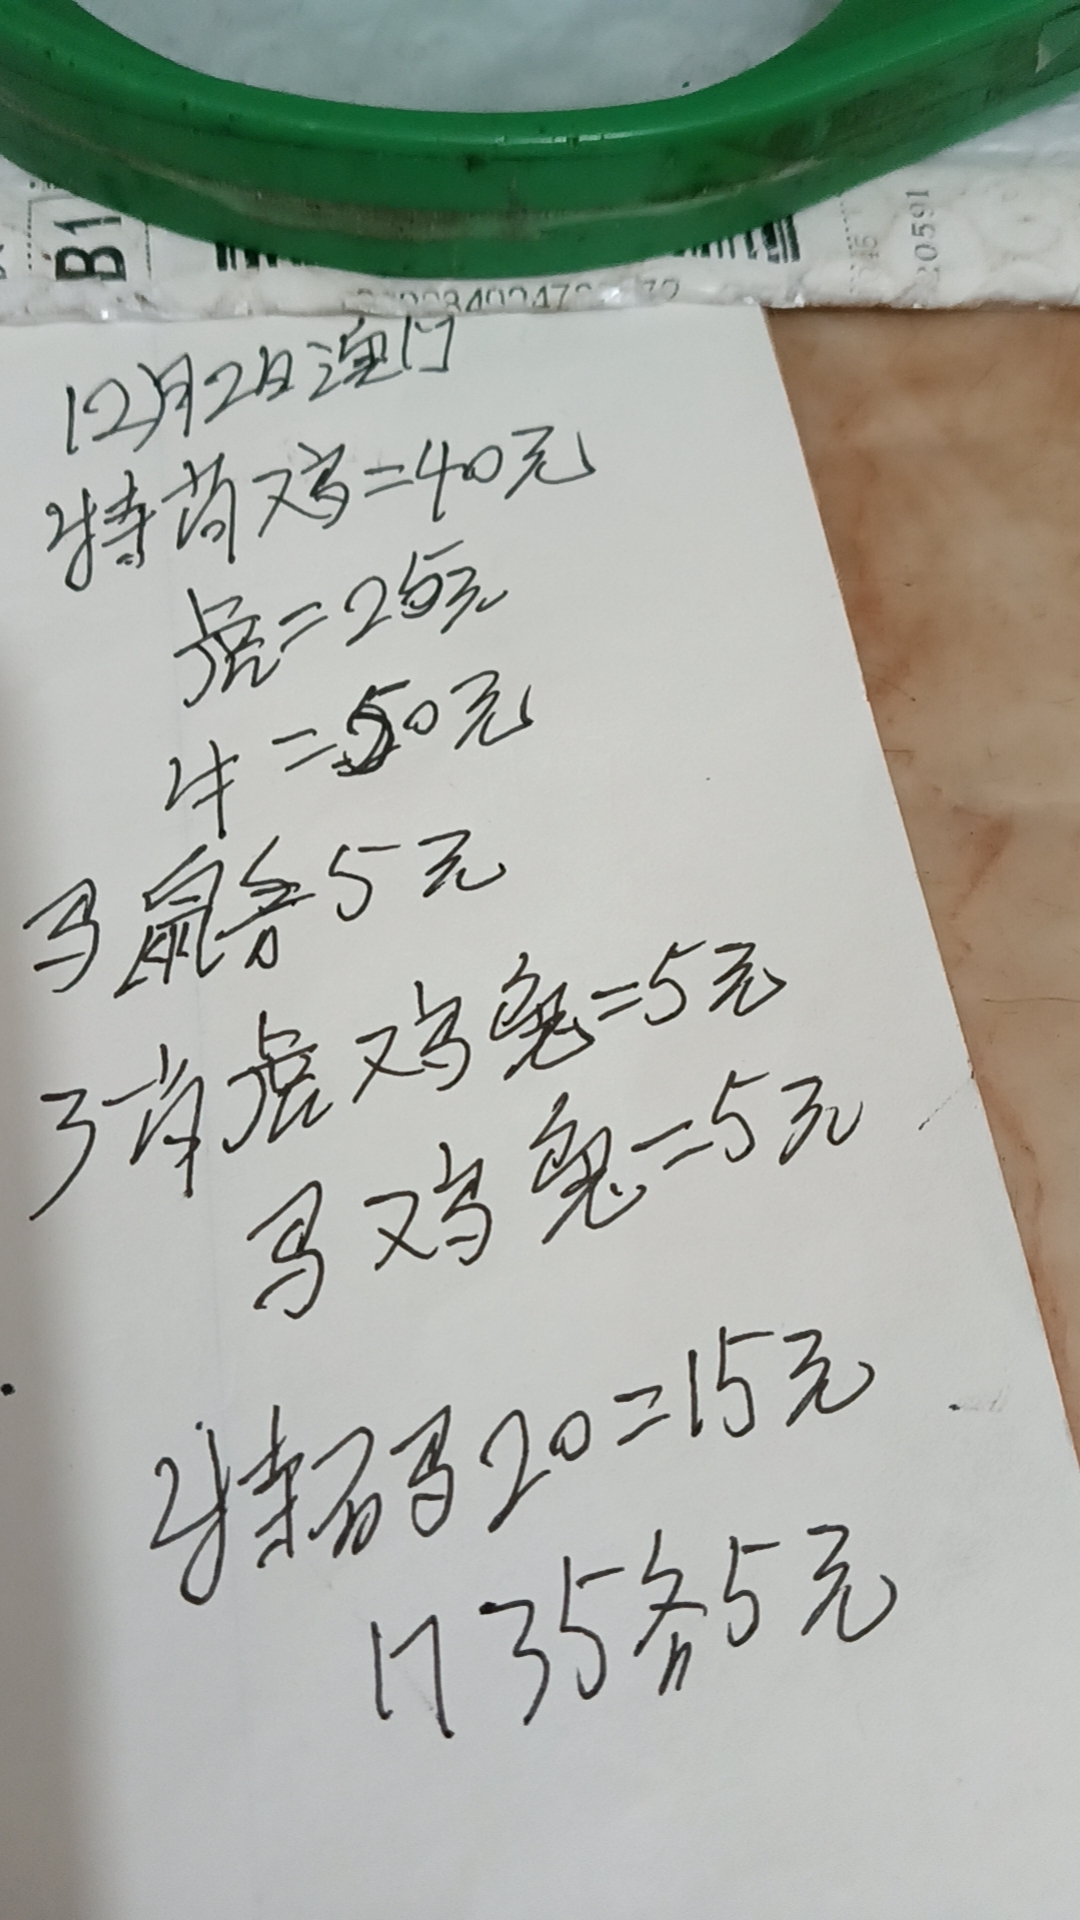 B1
20591
12月2日澳门
特肖鸡=40元
虎=25元
牛=50元
马鼠各5元
3肖虎鸡兔=5元
马鸡兔=5元
特码20=15元
17 35各5元